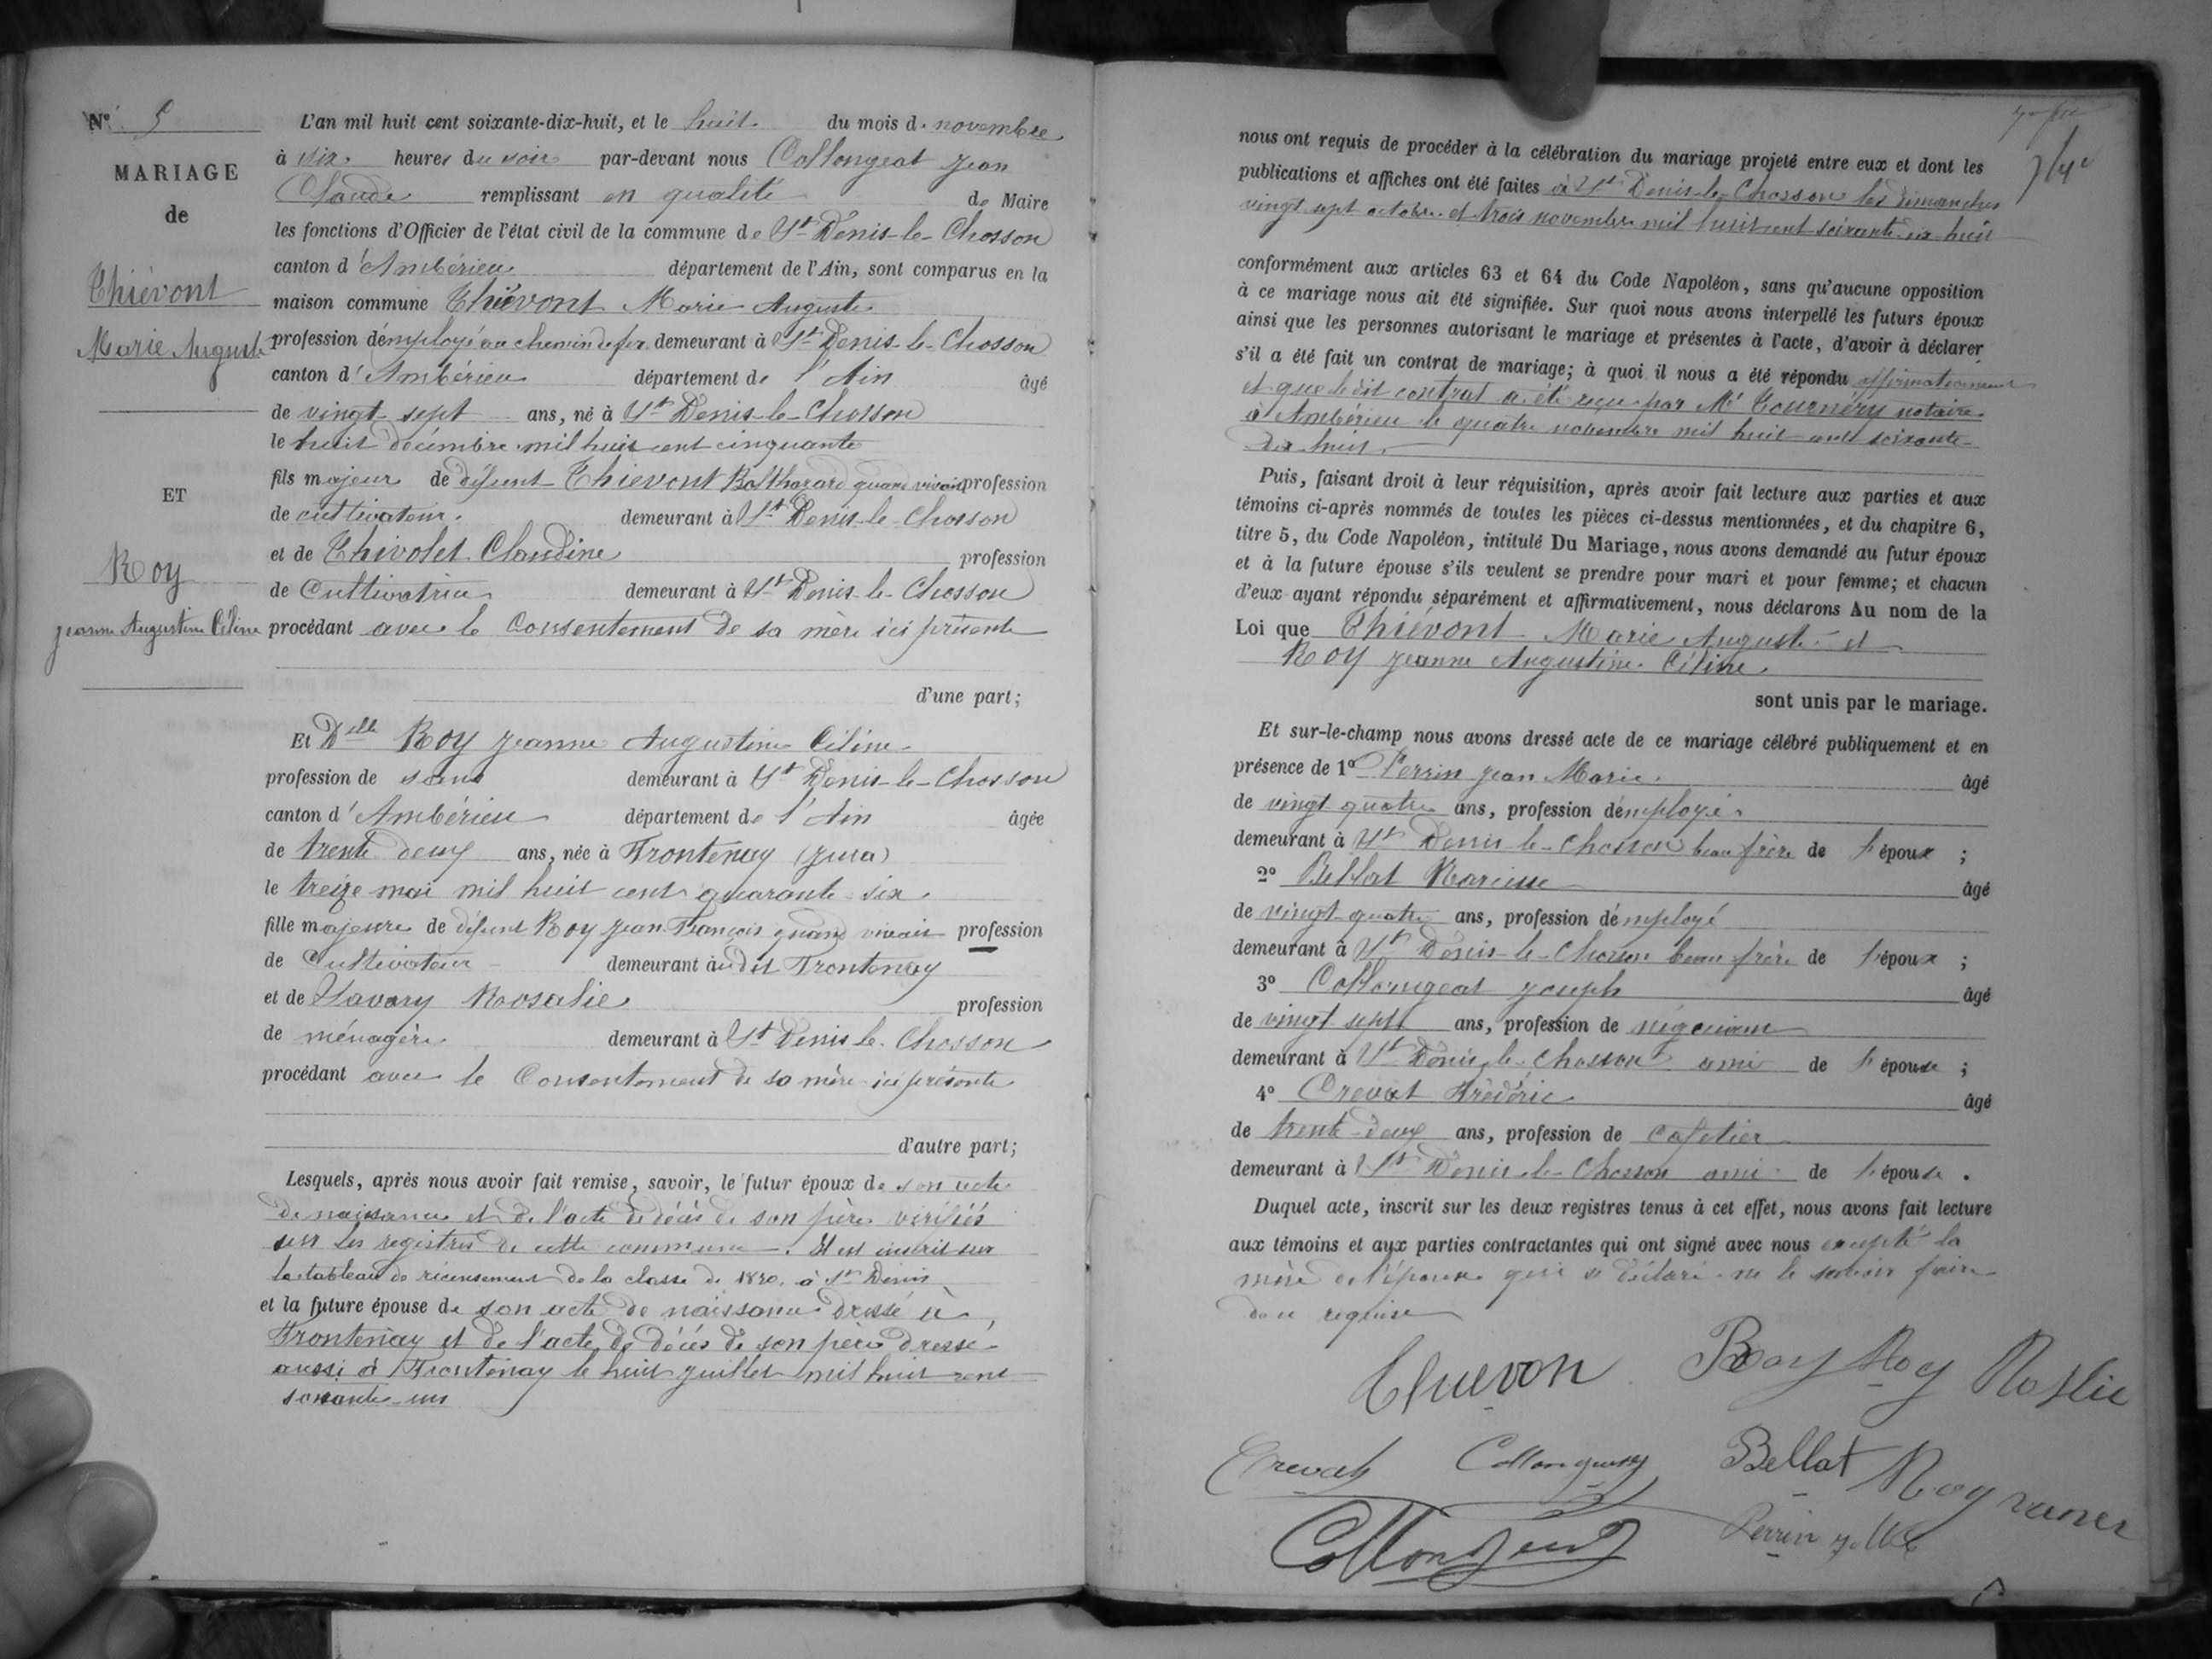 N° 5
MARIAGE
de
Thiévont
Marie Auguste
ET
Roy
Jeanne Augustine Céline
L'an mil huit cent soixante-dix-huit, et le huit du mois de novembre
à six heures du soir par-devant nous Collongeat Jean
Claude remplissant en qualité de Maire
les fonctions d'Officier de l'état civil de la commune de St Denis-le-Chosson
canton d'Ambérieu département de l'Ain, sont comparus en la
maison commune Thiévont Marie Auguste
profession d'employé au chemin de fer demeurant à St Denis-le-Chosson
canton d'Ambérieu département de l'Ain âgé
de vingt-sept ans, né à St Denis-le-Chosson
le huit décembre mil huit cent cinquante
fils majeur de défunt Thievont Balthazard quand vivait profession
de cultivateur demeurant à St Denis-le-Chosson
et de Thivolet Claudine profession
de Cultivatrice demeurant à St Denis-le-Chosson
procédant avec le Consentement de sa mère ici présente
d'une part;
Et Delle Roy Jeanne Augustine Céline
profession de sans demeurant à St Denis-le-Chosson
canton d'Ambérieu département de l'Ain âgée
de trente deux ans, née à Frontenay (Jura)
le treize mai mil huit cent quarante-six
fille majeure de défunt Roy Jean François quand vivait profession
de Cultivateur demeurant audit Frontenay
et de Lavary Roosalie profession
de ménagère demeurant à St Denis-le-Chosson
procédant avec le Consentement de sa mère ici présente
d'autre part;
Lesquels, après nous avoir fait remise, savoir, le futur époux de son acte
de naissance et de l'acte de décès de son père vérifiés
sur les registres de cette commune. Il est inscrit sur
le tableau de récensement de la classe de 1870 à St Denis
et la future épouse de son acte de naissance dressé à
Frontenay et de l'acte de décès de son père dressé
aussi à Frontenay le huit juillet mil huit cent
soixante-un
nous ont requis de procéder à la célébration du mariage projeté entre eux et dont les
publications et affiches ont été faites à St Denis-le-Chosson les dimanches
vingt sept octobre et trois novembre mil huit cent soixante dix huit
conformément aux articles 63 et 64 du Code Napoléon, sans qu'aucune opposition
à ce mariage nous ait été signifiée. Sur quoi nous avons interpellé les futurs époux
ainsi que les personnes autorisant le mariage et présentes à l'acte, d'avoir à déclarer
s'il a été fait un contrat de mariage; à quoi il nous a été répondu affirmativement
et que ledit contrat a été reçu par Me Tournéry notaire
à Ambérieu le quatre novembre mil huit cent soixante-
dix huit
Puis, faisant droit à leur réquisition, après avoir fait lecture aux parties et aux
témoins ci-après nommés de toutes les pièces ci-dessus mentionnées, et du chapitre 6,
titre 5, du Code Napoléon, intitulé Du Mariage, nous avons demandé au futur époux
et à la future épouse s'ils veulent se prendre pour mari et pour femme; et chacun
d'eux ayant répondu séparément et affirmativement, nous déclarons Au nom de la
Loi que Thiévont Marie Auguste et
Roy Jeanne Augustine Céline
sont unis par le mariage.
Et sur-le-champ nous avons dressé acte de ce mariage célébré publiquement et en
présence de 1° Perrin Jean Marie âgé
de vingt quatre ans, profession d'employé
demeurant à St Denis-le-Chosson beau frère de l'époux ;
2° Bellat Narcisse âgé
de vingt-quatre ans, profession d'employé
demeurant à St Denis-le-Chosson beau frère de l'époux ;
3° Collongeat Joseph âgé
de vingt sept ans, profession de négociant
demeurant à St Denis-le-Chosson ami de l'épouse ;
4° Crevat Frédéric âgé
de trente-deux ans, profession de cafetier
demeurant à St Denis-le-Chosson ami de l'épouse .
Duquel acte, inscrit sur les deux registres tenus à cet effet, nous avons fait lecture
aux témoins et aux parties contractantes qui ont signé avec nous excepté la
mère de l'époux qui a déclaré ne le savoir faire
de ce requise
Thievon Roy Roy Roslie
Crevat Collongeat Bellat Roy
Collongeat Perrin